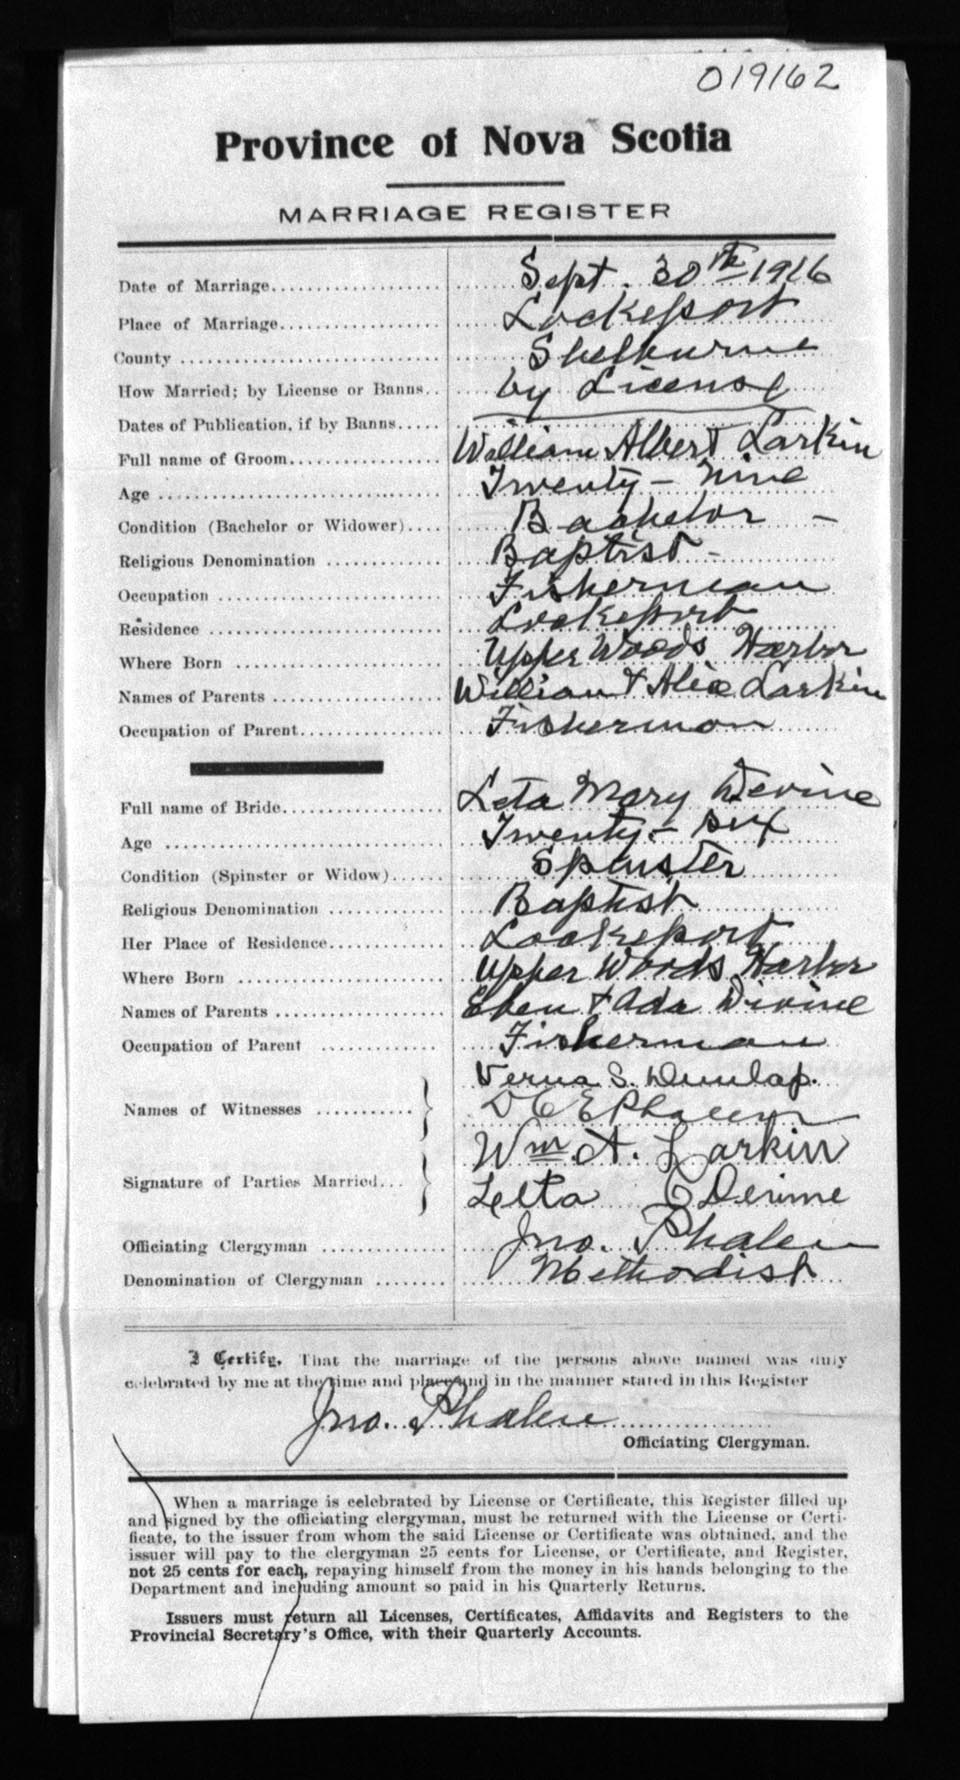 019162
Province of Nova Scotia
MARRIAGE REGISTER
Date of Marriage.................. Sept. 30th 1916
Place of Marriage.................. Lockeport
County .................. Shelburne
How Married; by License or Banns.. by License
Dates of Publication, if by Banns.....
Full name of Groom.................. William Albert Larkin
Age .................. Twenty-Nine
Condition (Bachelor or Widower).... Bachelor -
Religious Denomination ............ Baptist -
Occupation .................. Fisherman
Residence .................. Lockeport
Where Born .................. Upper Woods Harbor
Names of Parents .................. William & Alice Larkin
Occupation of Parent.................. Fishermon
Full name of Bride.................. Leta Mary Devine
Age .................. Twenty-six
Condition (Spinster or Widow)...... Spinster
Religious Denomination ............ Baptist
Her Place of Residence............ Lockeport
Where Born .................. Upper Woods Harbor
Names of Parents .................. Eben & Ada Divine
Occupation of Parent ............ Fisherman
Verna S. Dunlap.
Names of Witnesses ............ E Phalen
Wm. A. Larkin
Signature of Parties Married... Letta Devine
Officiating Clergyman ............ Jno. Phalen
Denomination of Clergyman ........ Methodist
I Certify, That the marriage of the persons above named was duly
celebrated by me at the time and place and in the manner stated in this Register
Jno. Phalen
Officiating Clergyman.
When a marriage is celebrated by License or Certificate, this Register filled up
and signed by the officiating clergyman, must be returned with the License or Certi-
ficate, to the issuer from whom the said License or Certificate was obtained, and the
issuer will pay to the clergyman 25 cents for License, or Certificate, and Register,
not 25 cents for each, repaying himself from the money in his hands belonging to the
Department and including amount so paid in his Quarterly Returns.
Issuers must return all Licenses, Certificates, Affidavits and Registers to the
Provincial Secretary's Office, with their Quarterly Accounts.